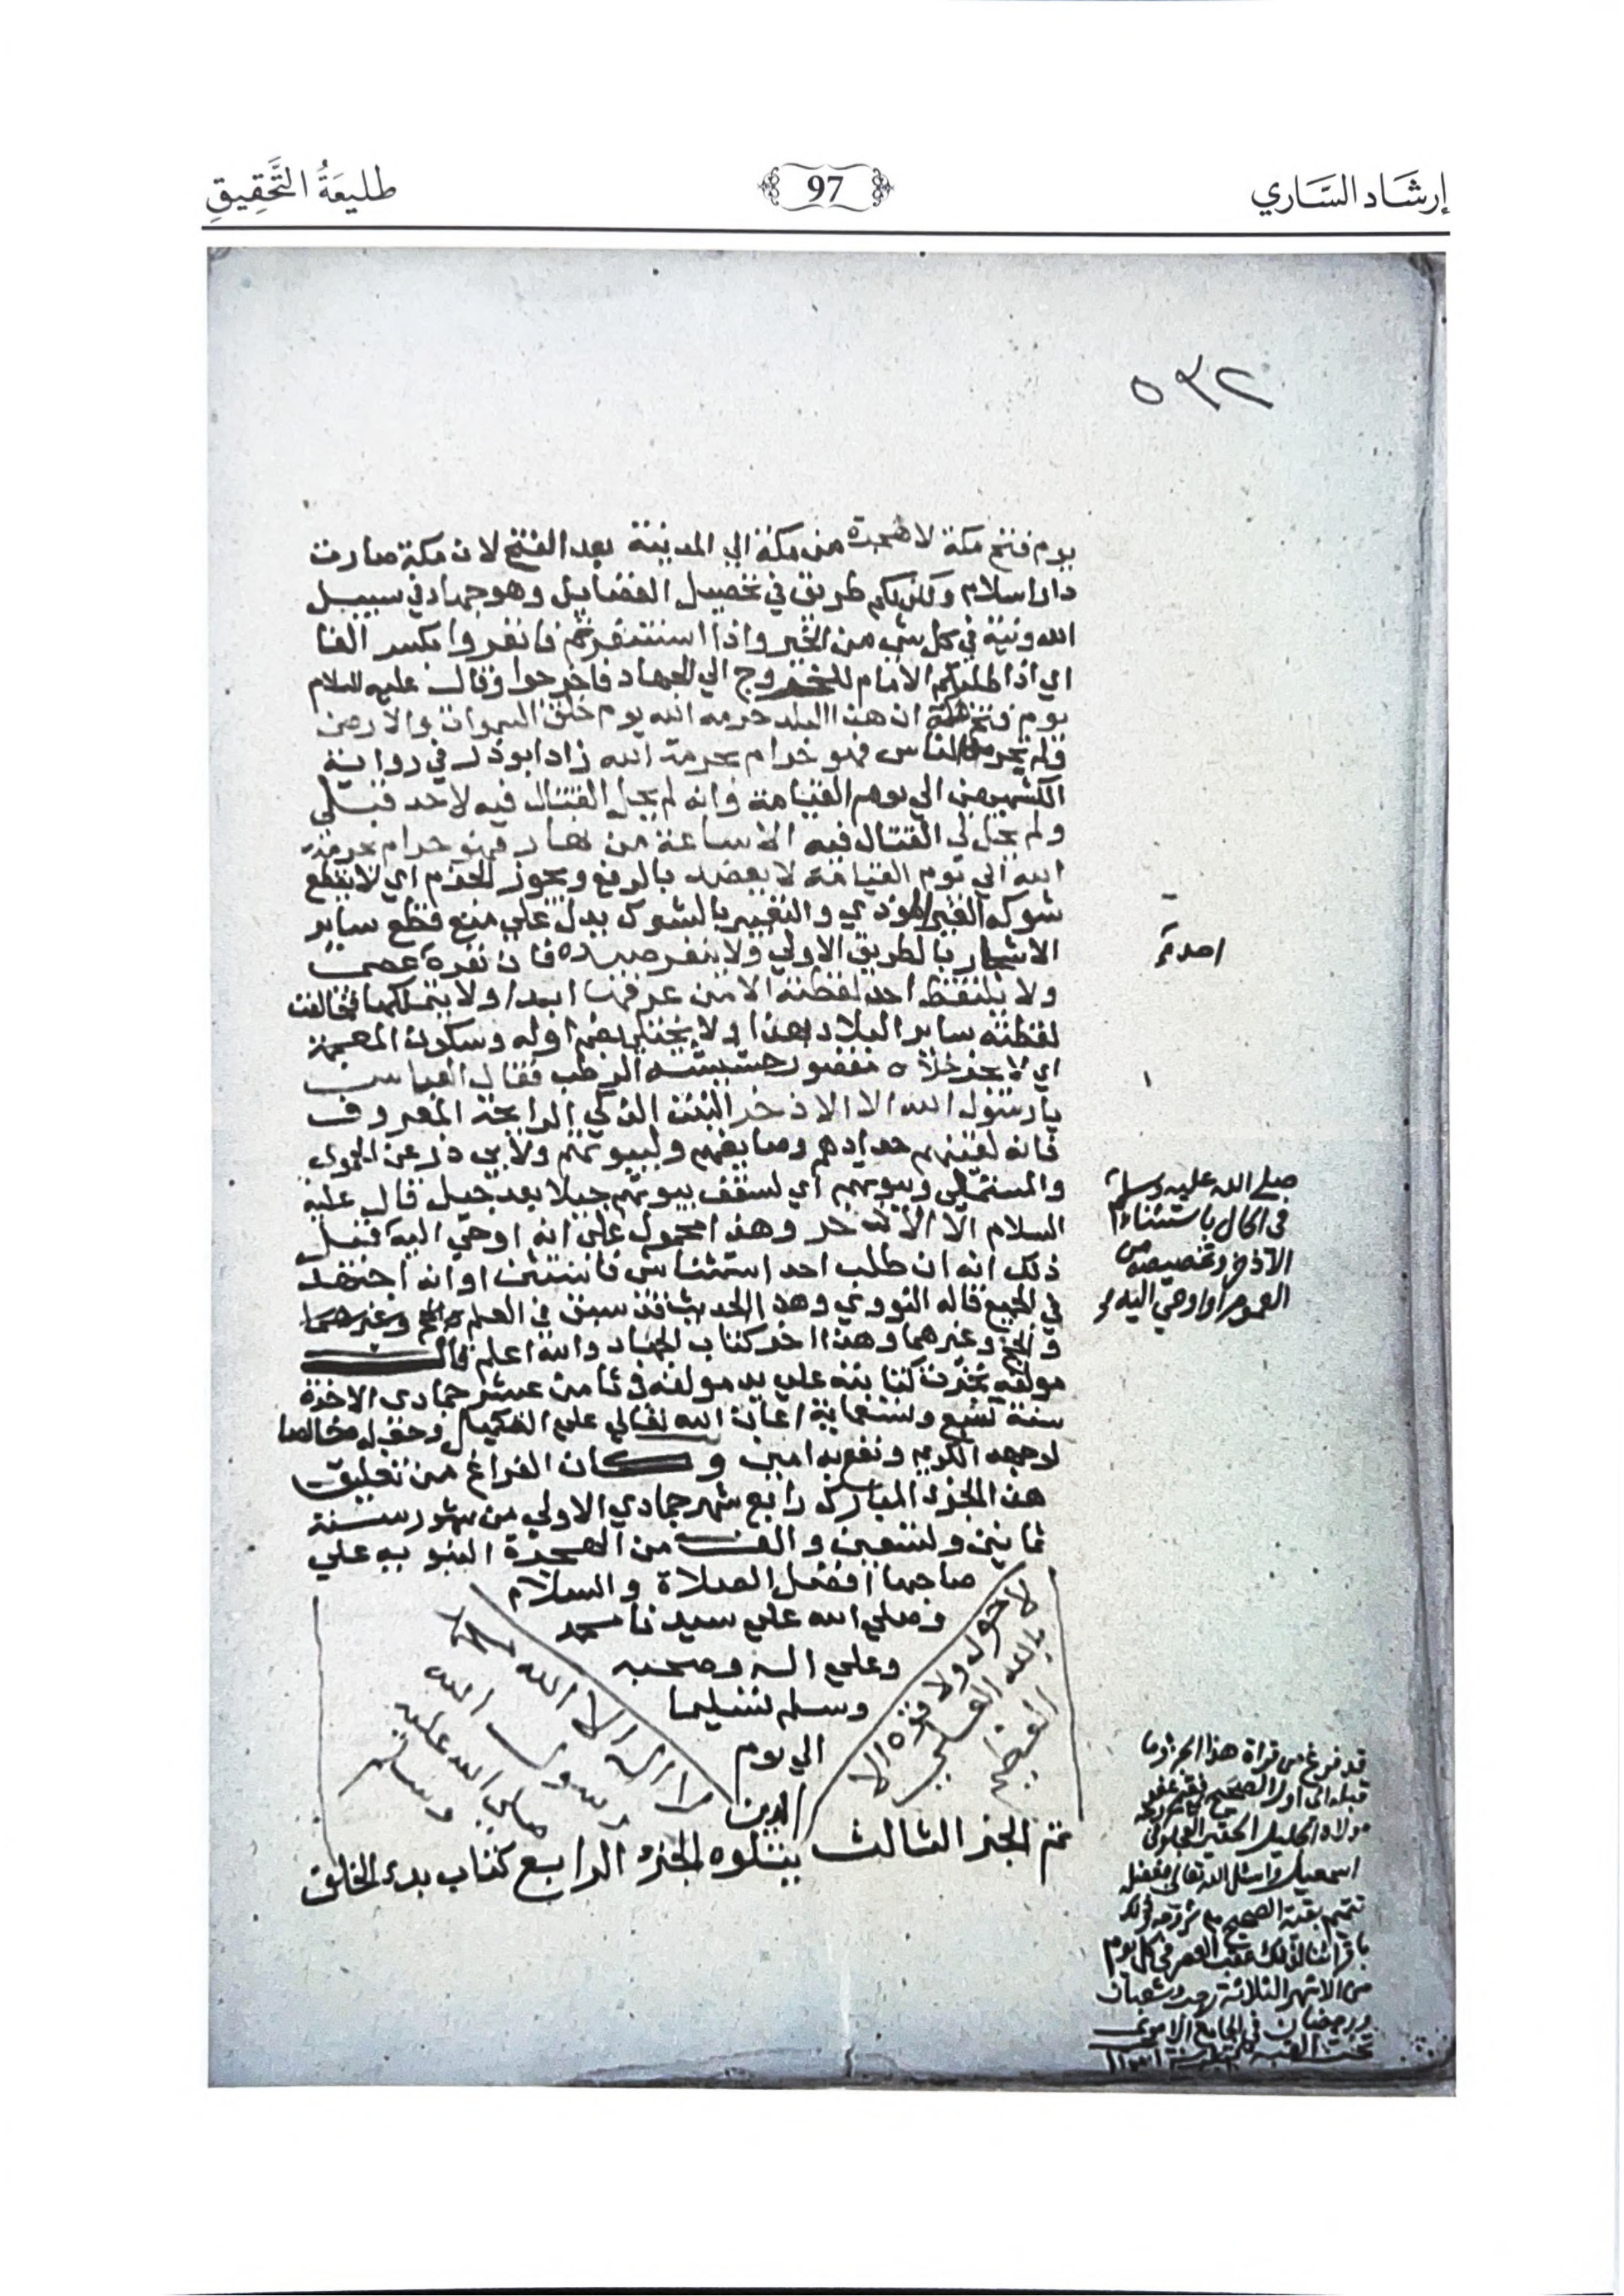 إرشَاد السَّاري
97
طليعَةُ التَّحْقِيقِ
٥٣٢
يوم فتح مكة لا هجرة من مكة الي المدينة بعد الفتح لان مكة صارت
دار اسلام ولكن لكم طريق في تحصيل الفضايل وهو جهاد في سبيل
الله ونية في كل شي من الخير واذا استنفرتم فانفروا بكسر الفا
اي اذا طلبكم الامام للخروج الي الجهاد فاخرجوا وقال عليه السلام
يوم فتح مكة ان هذا البلد حرمه الله يوم خلق السموات والارض
ولم يحرمه الناس فهو حرام بحرمة الله زاد ابو ذر في رواية
الكشميهني الي يوم القيامة وانه لم يحل القتال فيه لاحد قبلي
ولم يحل لي القتال فيه الا ساعة من نهار فهو حرام بحرمة
الله الي يوم القيامة لا يعضد بالرفع ويجوز الجزم اي لا يقطع
شوكه الغير الموذي والتعبير بالشوك يدل علي منع قطع ساير
الاشجار بالطريق الاولي ولا ينفر صيده فان نفره عصي
ولا يلتقط احد لقطته الا من عرفها ابدا ولا يتملكها فخالفت
لقطته ساير البلاد بهذا ولا يختلي بضم اوله وسكون المعجمة
اي لا يجز خلاه مقصور حشيشه الرطب فقال العباس
يا رسول الله الا الاذخر النبت الذكي الرايحة المعروف
فانه لقينهم حدادهم وصايغهم ولبيوتهم ولابي ذر عن الحموي
والمستملي وبيوتهم اي لسقف بيوتهم جيلا بعد جيل قال عليه
السلام الا الاذخر وهذا محمول علي انه اوحي اليه قبل
ذلك انه ان طلب احد استثناس فاستثن او انه اجتهد
في الجميع قاله النووي وهذا الحديث قد سبق في العلم والحج وغيرهما
والحج وغيرهما وهذا اخر كتاب الجهاد والله اعلم قال
مولفه نجزت كتابته علي يد مولفه في ثامن عشر جمادي الاخرة
سنة تسع وتسعماية اعان الله تعالي علي التكميل وجعله خالصا
لوجهه الكريم ونفع به امين وكان الفراغ من تعليق
هذا الجزء المبارك رابع شهر جمادي الاولي من شهور سنة
ثمانين وتسعين والف من الهجرة النبويه علي
صاحبها افضل الصلاة والسلام
وصلي الله علي سيدنا محمد
وعلي اله وصحبه
وسلم تسليما
الي يوم
الدين
لا حول ولا قوة الا
بالله العلي
العظيم
لا اله الا الله محمد
رسول الله
صلي الله عليه
وسلم
تم الجزء الثالث يتلوه الجزء الرابع كتاب بدء الخلق
صلي الله عليه وسلم
في الحال باستثناء
الاذخر وتخصيصه من
العموم او اوحي اليه
قد فرغ من قراة هذا الجزء وما
قبله الي اول الصحيح
مولاه الجليل الحقير العجلوني
اسمعيل واسئل الله تعالي بفضله
تتميم بقية الصحيح
من الاشهر الثلاثة رجب وشعبان
ورمضان في الجامع الاموي
تحت القبة